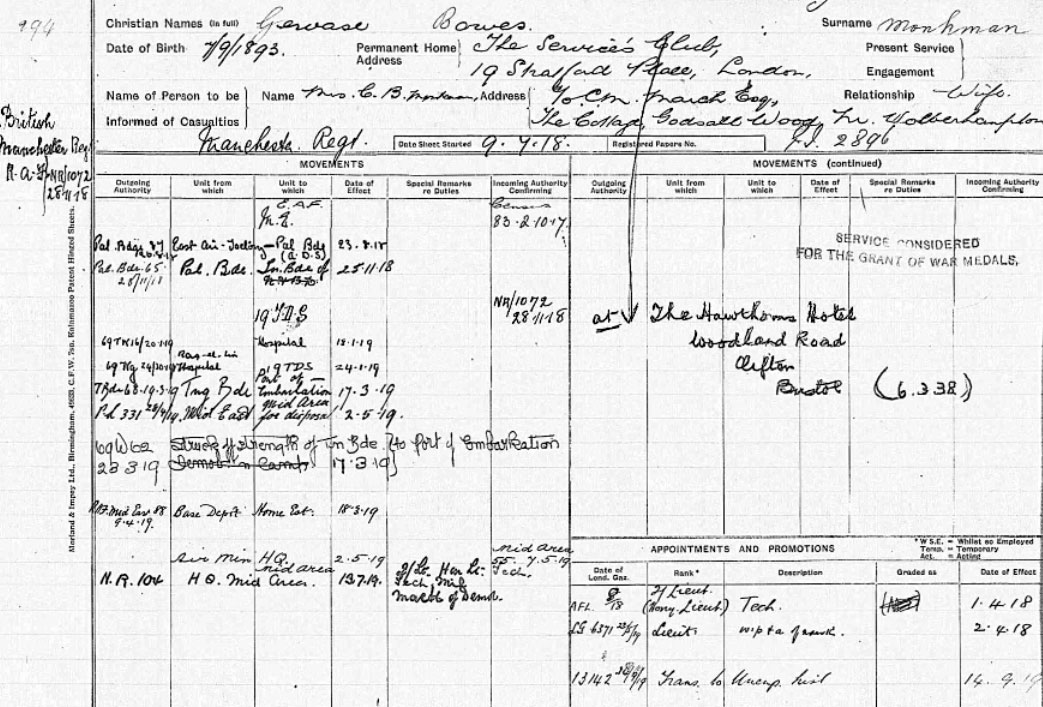 194
Christian Names (in full) Gervase Bowes. Surname Monkman
Date of Birth 7/9/1893. Permanent Home Address The Services Club, Present Service
19 Stratford Place, London, Engagement
Name of Person to be Informed of Casualties Name Mrs. C. B. Monkman, Address C/o. C.M. March Esq, Relationship Wife
The Cottage, Godsall Wood, Nr. Wolverhampton
Manchester Regt. Date Sheet Started 9.7.18. Registered Papers No. 2896
British
Manchester Reg
R.A.F. NR/1072
28/11/18
Morland & Impey Ltd., Birmingham, Kalamazoo Patent Hinged Sheets.
MOVEMENTS
Outgoing Authority Unit from which Unit to which Date of Effect Special Remarks re Duties Incoming Authority Confirming
E.A.F. Census
M.E. 83.2.10.17
Pal. Bdge 27 East Air-Factory Pal Bde 23.8.18
(A.D.S)
Pal. Bde 65 Pal. Bde. Tn. Bde of 25.11.18
28/11/18
NR/1072
19 T.D.S 28.11.18
69TW16/20.1.19 Hospital 18.1.19
69 Wg 24/30/19 Hospital 19 TDS 24.1.19
TBde 68.19.3.19 Tng Bde Port of Embarkation 17.3.19
Pd 331 28/4/19 Mid East Mid Area for disposal 2-5-19.
69W62 Struck off strength of Tn Bde. (to Port of Embarkation
23.3.19 17.3.19)
Mid East 88 Base Depot Home Est. 18.3.19
9.4.19.
Air Min HQ mid area 2-5-19 Mid Area
55. 7.5.19.
N.R. 104 H.Q. Mid Area. 13.7.19. 2/Lt. Hon Lt. Tech.
Tech,
of Demob.
MOVEMENTS (continued)
Outgoing Authority Unit from which Unit to which Date of Effect Special Remarks re Duties Incoming Authority Confirming
SERVICE CONSIDERED
FOR THE GRANT OF WAR MEDALS.
at The Hawthorns Hotel
Woodland Road
Clifton
Bristol (6.3.38)
APPOINTMENTS AND PROMOTIONS
* W.S.E. = Whilst so Employed
Temp. = Temporary
Act. = Acting
Date of Lond. Gaz. Rank* Description Graded as Date of Effect
AFL 8/18 2/Lieut. (Hony. Lieut.) Tech. 1.4.18
LG 6371 23/5/19 Lieut. w.p. & a of rank. 2.4.18
13142 Trans. to Unemp. List 14.9.19